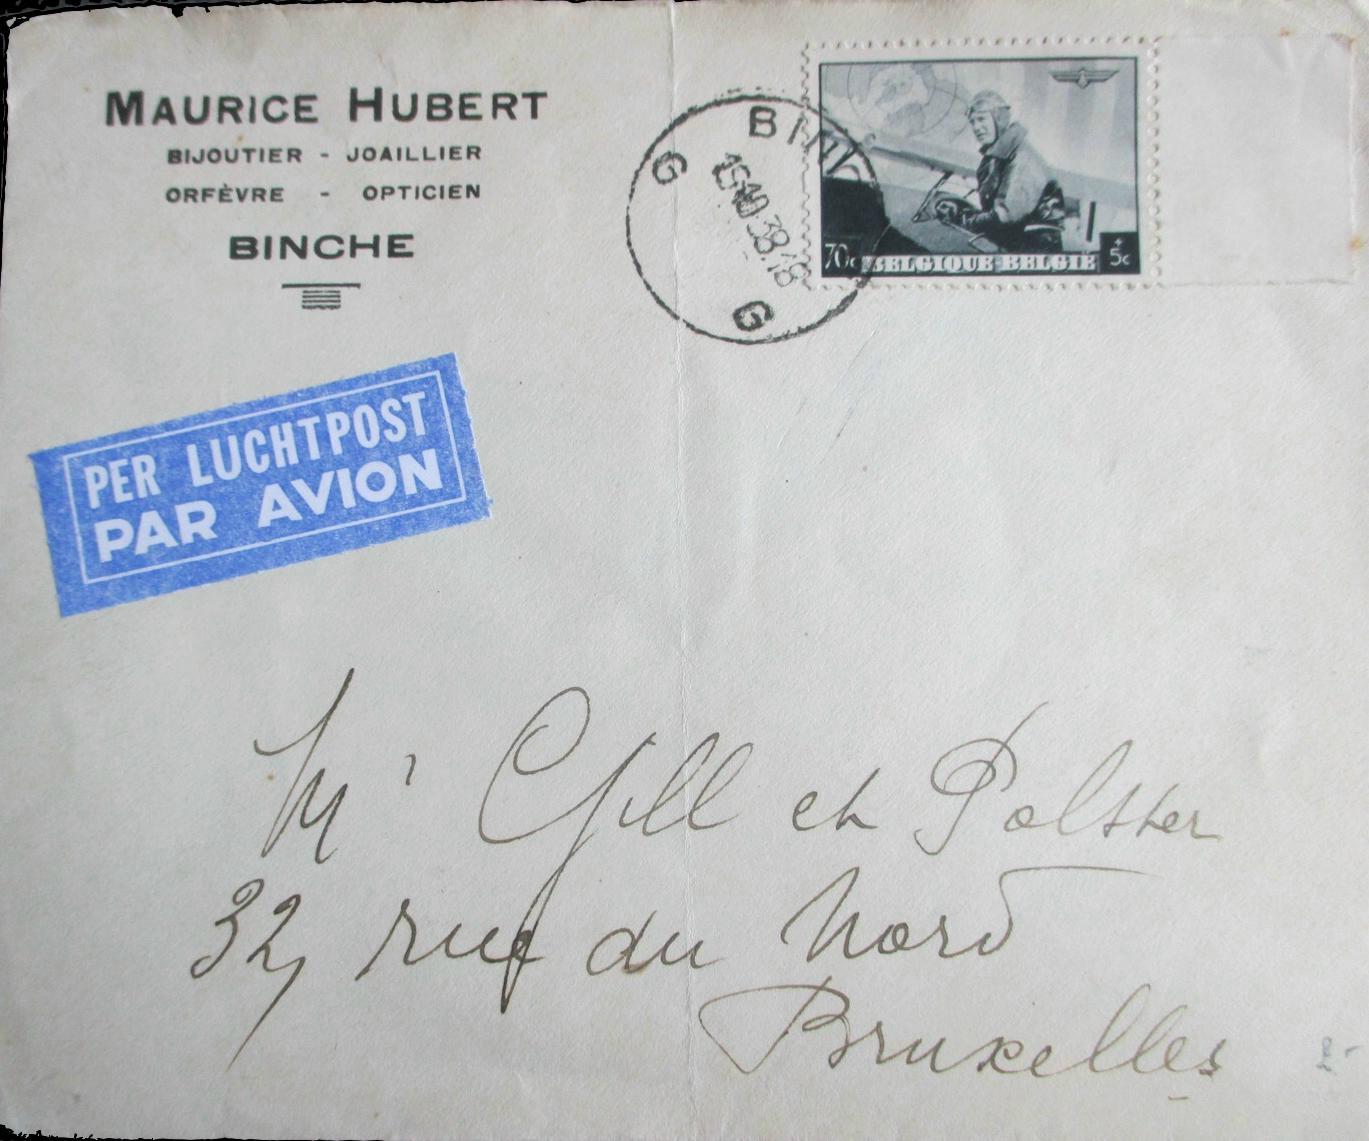 MAURICE HUBERT
BIJOUTIER - JOAILLIER
ORFÈVRE - OPTICIEN
BINCHE
G G
38.18
70c BELGIQUE-BELGIË + 5c
PER LUCHTPOST
PAR AVION
Mr Gill et Polster
32, rue du Nord
Bruxelles